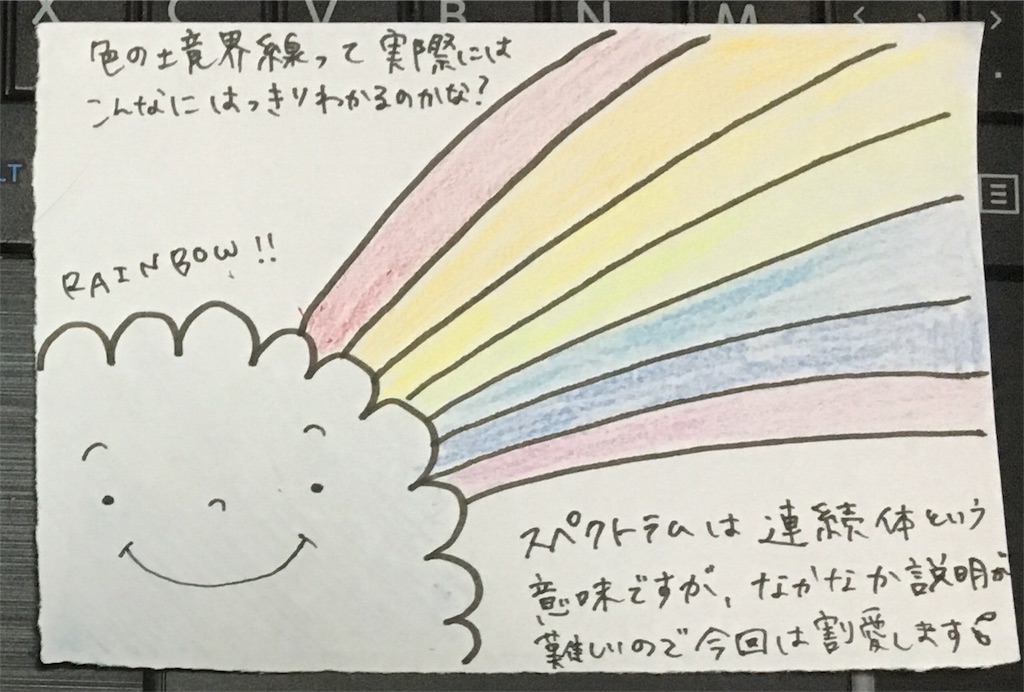 X C V B N M < >
色の境界線って実際には
こんなにはっきりわかるのかな?
LT
RAINBOW!!
スペクトラムは連続体という
意味ですが、なかなか説明が
難しいので今回は割愛します